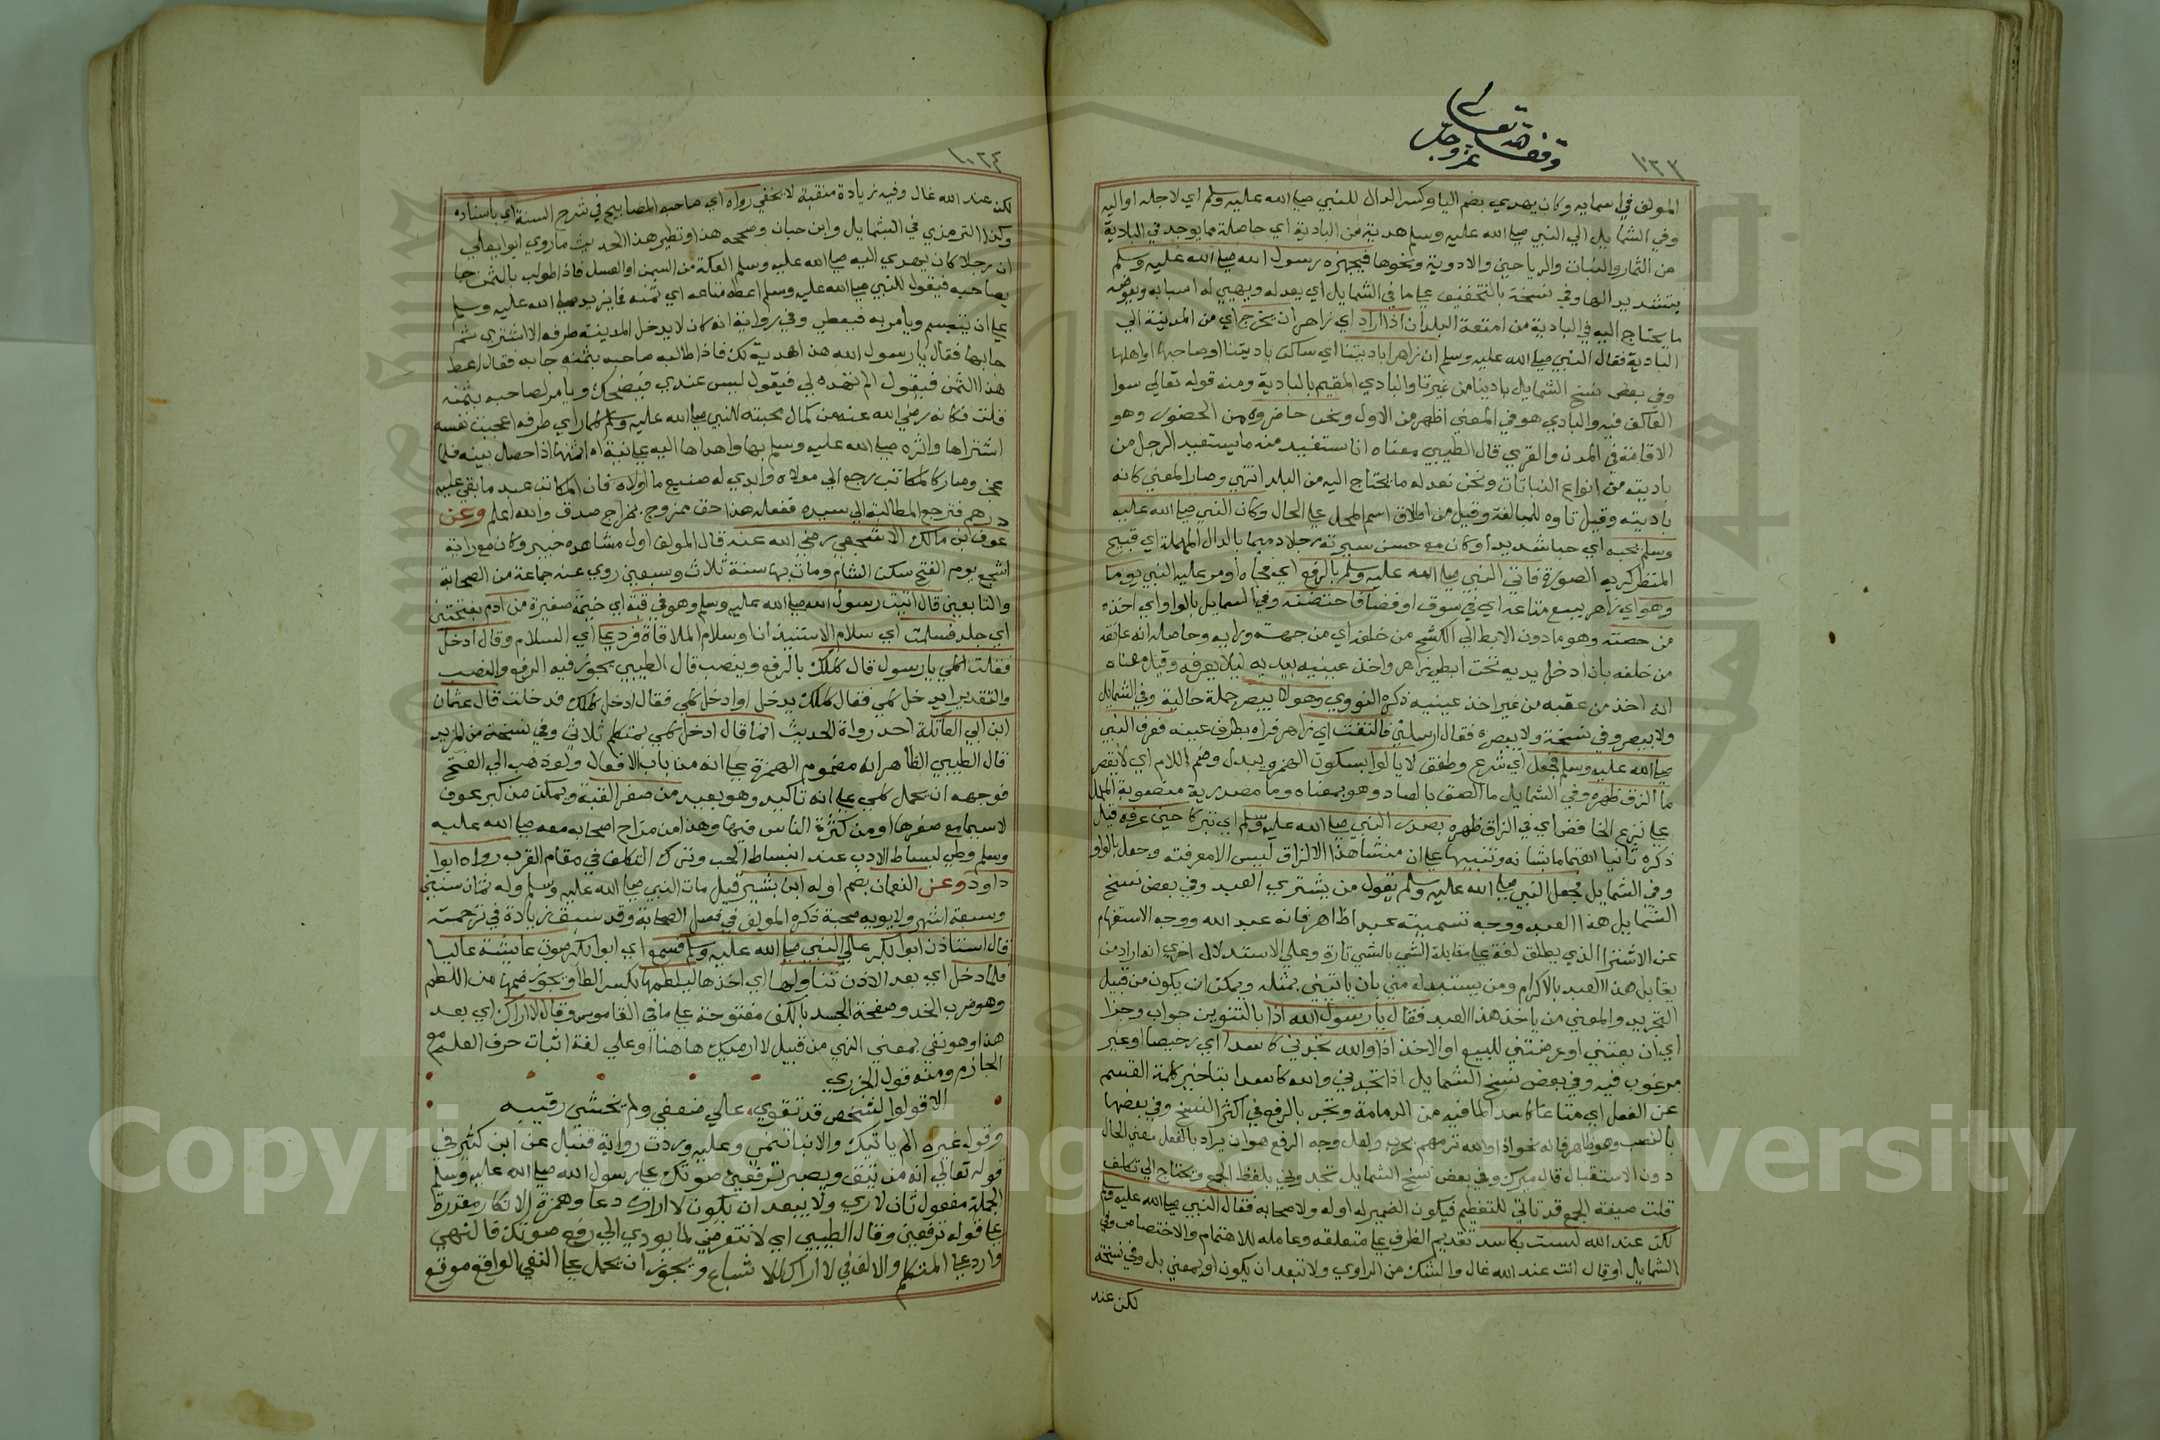 وقف لله تعالى
عز وجل
١٠٢٣
المولف في اسمايه وكان يهدي بضم اليا وكسر الدال للنبي صلى الله عليه وسلم اي لاجله او اليه
وفي الشمايل الي النبي صلى الله عليه وسلم هدية من البادية اي حاصلة مما يوجد في البادية
من الثمار والنبات والرياحين والادوية ونحوها فيجهزه رسول الله صلى الله عليه وسلم
بتشديد الها وفي نسخة بالتخفيف على ما في الشمايل اي يعد له ويهيي له اسبابه ويعوضه
ما يحتاج اليه في البادية من امتعة البلدان اذا اراد اي زاهر ان يخرج اي من المدينة الي
البادية فقال النبي صلى الله عليه وسلم ان زاهرا باديتنا اي ساكن باديتنا او صاحبها او اهلها
وفي بعض نسخ الشمايل بادينا من غير تا والبادي المقيم بالبادية ومنه قوله تعالي سوا
العاكف فيه والبادي هو في المعني اظهر من الاول ونحن حاضروه من الحضور وهو
الاقامة في المدن والقري قال الطيبي معناه انا نستفيد منه ما يستفيد الرجل من
باديته من انواع النباتات ونحن نعد له ما يحتاج اليه من البلد انتهي وصار المعني كانه
باديته وقيل تاوه للمبالغة وقيل من اطلاق اسم المحل على الحال وكان النبي صلى الله عليه
وسلم يحبه اي حبا شديدا وكان مع حسن سيرته رجلا دميما بالدال المهملة اي قبيح
المنظر كريه الصورة فاتي النبي صلى الله عليه وسلم بالرفع اي فجاه او مر عليه النبي يوما
وهو اي زاهر يبيع متاعه اي في سوق او فضا فاحتضنه وفي الشمايل بالواو اي اخذه
من حضنه وهو ما دون الابط الي الكشح من خلفه اي من جهة ورايه وحاصله انه عانقه
من خلفه بان ادخل يديه تحت ابطي زاهر واخذ عينيه بيديه ليلا يعرفه وقيل معناه
انه اخذ من عقبه من غير اخذ عينيه ذكره النووي وهو لا يبصر جملة حالية وفي الشمايل
ولا يبصر وفي نسخة ولا يبصره فقال ارسلني فالتفت اي زاهر فراه بطرف عينه فعرف النبي
صلى الله عليه وسلم فجعل اي شرع وطفق لا يالوا بسكون الهمز ويبدل وضم اللام اي لا يقصر
ما الزق ظهره وفي الشمايل ما الصق بالصاد وهو بمعناه وما مصدرية منصوبة المحل
على نزع الخافض اي في الزاق ظهره بصدر النبي صلى الله عليه وسلم اي تبركا حين عرفه قيل
ذكره ثانيا اهتماما بشانه وتنبيها على ان منشا هذا الالزاق ليس الا معرفته وجعل بالواو
وفي الشمايل فجعل النبي صلى الله عليه وسلم يقول من يشتري العبد وفي بعض نسخ
الشمايل هذا العبد ووجه تسميته عبدا ظاهر فانه عبد الله ووجه الاستفهام
عن الاشترا الذي يطلق لغة على مقابلة الشي بالشي تارة وعلي الاستدلال اخري انه اراد من
يقابل هذا العبد بالاكرام ومن يستبدله مني بان ياتيني بمثله ويمكن ان يكون من قبيل
التجريد والمعني من ياخذ هذا العبد فقال يا رسول الله اذا بالتنوين جواب وجزا
اي ان بعتني او عرضتني للبيع او الاخذ اذا والله تجدني كاسدا اي رخيصا او غير
مرغوب فيه وفي بعض نسخ الشمايل اذا تجدني والله كاسدا بتاخير كلمة القسم
عن الفعل اي متاعا كاسدا لما فيه من الدمامة وتجد بالرفع في اكثر النسخ وفي بعضها
بالنصب وهو ظاهر فانه نحو اذا والله نرميهم بحرب ولعل وجه الرفع هو ان يراد بالفعل معني الحال
دون الاستقبال قال ميرك وفي بعض نسخ الشمايل تجدوني بلفظ الجمع ويحتاج الي تكلف
قلت صيغة الجمع قد تاتي للتعظيم فيكون الضمير له او له ولاصحابه فقال النبي صلى الله عليه وسلم
لكن عند الله لست بكاسد تقديم الظرف على متعلقه وعامله للاهتمام والاختصاص وفي
الشمايل او قال انت عند الله غال والشك من الراوي ولا تبعد ان يكون او بمعني بل وفي نسخة
لكن عند
١٠٢٤
لكن عند الله غال وفيه زيادة منقبة لا يخفي رواه اي صاحب المصابيح في شرح السنة اي باسناده
وكذا الترمذي في الشمايل وابن حبان وصححه هذا ونظير هذا الحديث ما روي ابو يعلي
ان رجلا كان يهدي اليه صلى الله عليه وسلم العكة من السمن او العسل فاذا طولب بالثمن جا
بصاحبه فيقول للنبي صلى الله عليه وسلم اعطه متاعه اي ثمنه فما يزيد صلى الله عليه وسلم
على ان يتبسم ويامر به فيعطي وفي رواية انه كان لا يدخل المدينة طرفه الا اشتري ثم
جا بها فقال يا رسول الله هذا هدية لك فاذا طالبه صاحبه بثمنه جا به فقال اعط
هذا الثمن فيقول الم تهده لي فيقول ليس عندي فيضحك ويامر لصاحبه بثمنه
قلت فكانه رضي الله عنه من كمال محبته للنبي صلى الله عليه وسلم كلما راي طرفه اعجبت نفسه
اشتراها واثره صلى الله عليه وسلم بها واهداها اليه على نية اداء ثمنها اذا حصل بيده فلما
عجز وصار كالمكاتب رجع الي مولاه وابدي له صنيع ما اولاه فان المكاتب عبد ما بقي عليه
درهم فترجع المطالبة الي سيده ففعله هذا حق ممزوج بمزاج صدق والله اعلم وعن
عوف ابن مالك الاشجعي رضي الله عنه قال المولف اول مشاهده خيبر وكان مع راية
اشجع يوم الفتح سكن الشام ومات بها سنة ثلاث وسبعين روي عنه جماعة من الصحابة
والتابعين قال اتيت رسول الله صلى الله عليه وسلم وهو في قبة اي خيمة صغيرة من ادم بفتحتين
اي جلد فسلمت اي سلام الاستيذان او سلام الملاقاة فرد علي اي السلام وقال ادخل
فقلت اكلي يا رسول قال كلك بالرفع وينصب قال الطيبي يجوز فيه الرفع والنصب
والتقدير ايدخل كلي فقال كلك يدخل او ادخل كلي فقال ادخل كلك فدخلت قال عثمان
ابن ابي العاتكة احد رواة الحديث انما قال ادخل كلي بمتكلم ثلاثي وفي نسخة من المزيد
قال الطيبي الظاهر انه مضموم الهمزة على انه من باب الافعال ولو ذهب الي الفتح
فوجهه ان يحمل كلي على انه تاكيد وهو بعيد من صغر القبة ويمكن من كبر عوف
لا سيما مع صغرها او من كثرة الناس فيها وهذا من مزاح اصحابه معه صلى الله عليه
وسلم وطي لبساط الادب عند انبساط الحب وترك التكلف في مقام القرب رواه ابوا
داود وعن النعمان بضم اوله ابن بشير قيل مات النبي صلى الله عليه وسلم وله ثمان سنين
وسبعة اشهر ولابويه صحبة ذكره المولف في فصل الصحابة وقد سبق زيادة في ترجمته
قال استاذن ابو بكر علي النبي صلى الله عليه وسلم فسمع اي ابو بكر صوت عايشة عاليا
فلما دخل اي بعد الاذن تناولها اي اخذها ليلطمها بكسر الطا ويجوز ضمها من اللطم
وهو ضرب الخد وصفحة الجسد بالكف مفتوحة على ما في القاموس وقال الا اراك اي بعد
هذا وهو نفي بمعني النهي من قبيل لا ارينك هاهنا او علي لغة اثبات حرف العلة مع
الجازم ومنه قول الجزري
الا قولوا لشخص قد تقوي، علي ضعفي ولم يخشي رقيبه
وقوله غيره الم ياتيك والانبا تنمي وعليه وردت رواية قنبل عن ابن كثير في
قوله تعالي انه من يتقي ويصبر ترفعين صوتك على رسول الله صلى الله عليه وسلم
الجملة مفعول ثان لاري ولا يبعد ان يكون لا اراك دعا وهمزة الانكار مقدرة
على قوله ترفعين وقال الطيبي اي لا تتعرضي لما يودي الي رفع صوتك فالنهي
وارد على المتكلم والالف في لا اراك للاشباع ويجوز ان يحمل على النفي الواقع موقع
Copyright © King Saud University